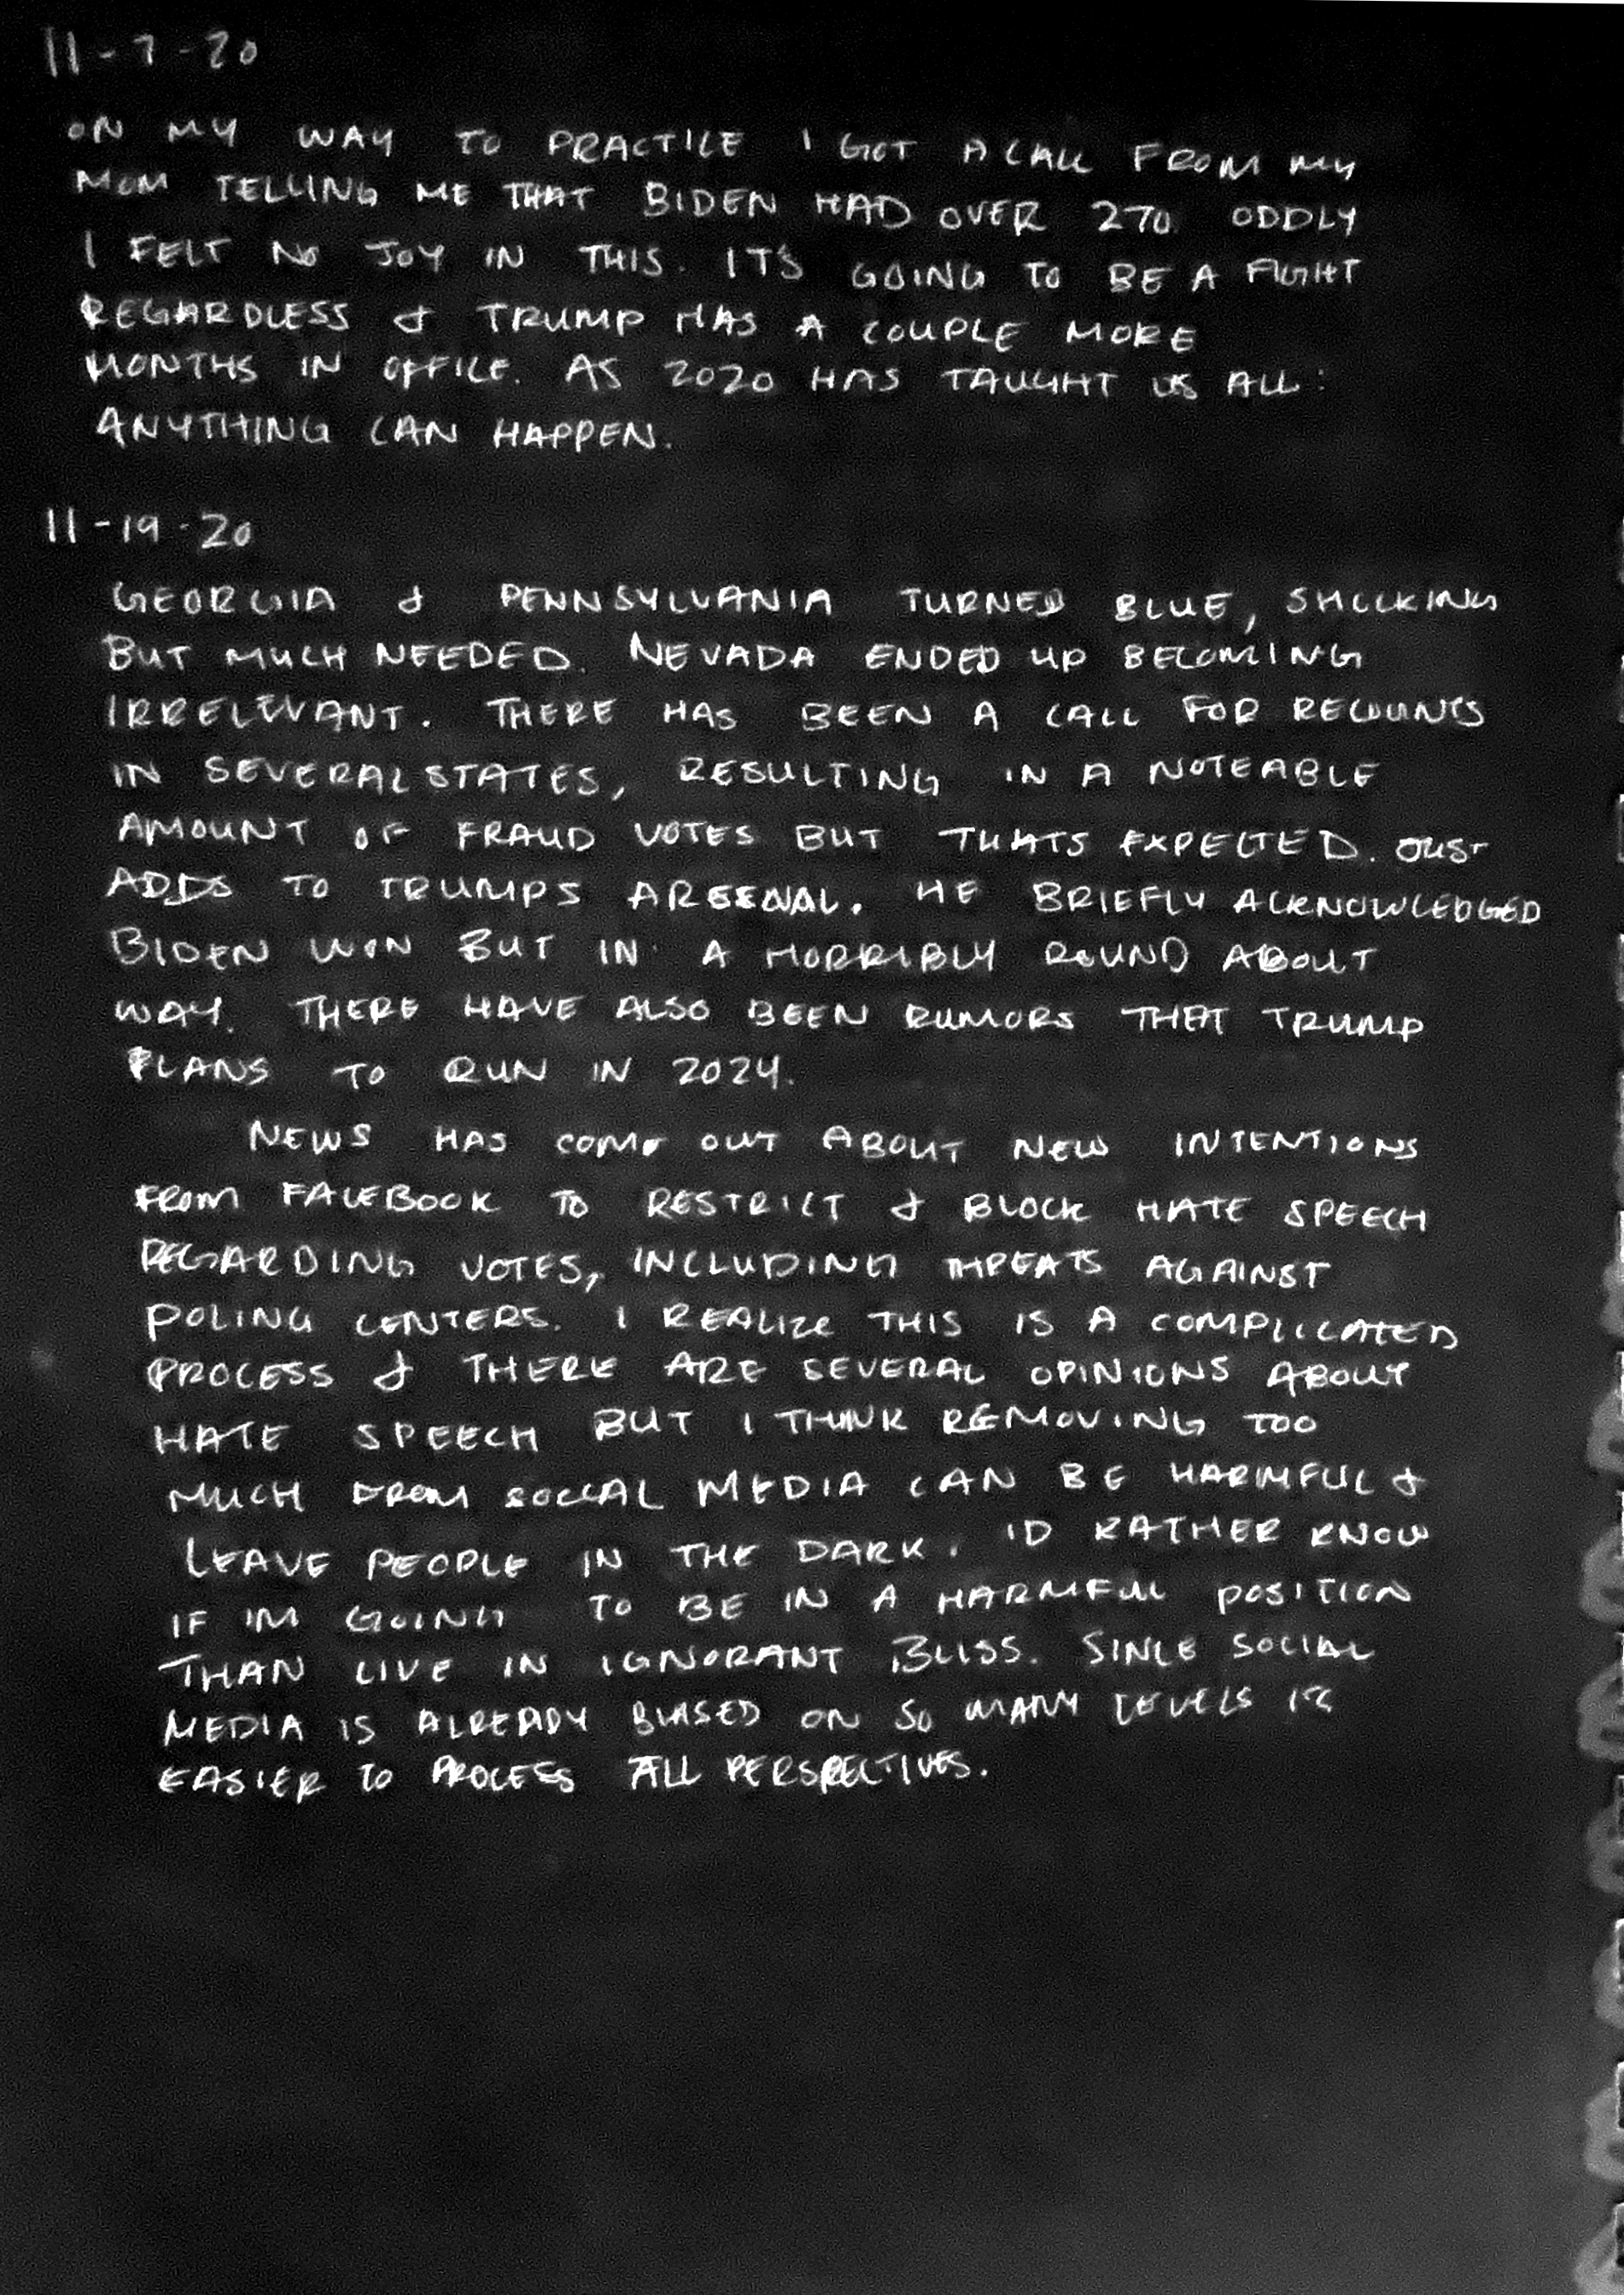 11-7-20
ON MY WAY TO PRACTICE I GOT A CALL FROM MY
MOM TELLING ME THAT BIDEN HAD OVER 270. ODDLY
I FELT NO JOY IN THIS. IT'S GOING TO BE A FIGHT
REGARDLESS & TRUMP HAS A COUPLE MORE
MONTHS IN OFFICE. AS 2020 HAS TAUGHT US ALL:
ANYTHING CAN HAPPEN.
11-19-20
GEORGIA & PENNSYLVANIA TURNED BLUE, SHOCKING
BUT MUCH NEEDED. NEVADA ENDED UP BECOMING
IRRELEVANT. THERE HAS BEEN A CALL FOR RECOUNTS
IN SEVERAL STATES, RESULTING IN A NOTEABLE
AMOUNT OF FRAUD VOTES BUT THATS EXPECTED. JUST
ADDS TO TRUMPS ARSENAL. HE BRIEFLY ACKNOWLEDGED
BIDEN WON BUT IN A HORRIBLY ROUND ABOUT
WAY. THERE HAVE ALSO BEEN RUMORS THAT TRUMP
PLANS TO RUN IN 2024.
NEWS HAS COME OUT ABOUT NEW INTENTIONS
FROM FACEBOOK TO RESTRICT & BLOCK HATE SPEECH
REGARDING VOTES, INCLUDING THREATS AGAINST
POLING CENTERS. I REALIZE THIS IS A COMPLICATED
PROCESS & THERE ARE SEVERAL OPINIONS ABOUT
HATE SPEECH BUT I THINK REMOVING TOO
MUCH FROM SOCIAL MEDIA CAN BE HARMFUL &
LEAVE PEOPLE IN THE DARK. ID RATHER KNOW
IF IM GOING TO BE IN A HARMFUL POSITION
THAN LIVE IN IGNORANT BLISS. SINCE SOCIAL
MEDIA IS ALREADY BIASED ON SO MANY LEVELS ITS
EASIER TO PROCESS ALL PERSPECTIVES.